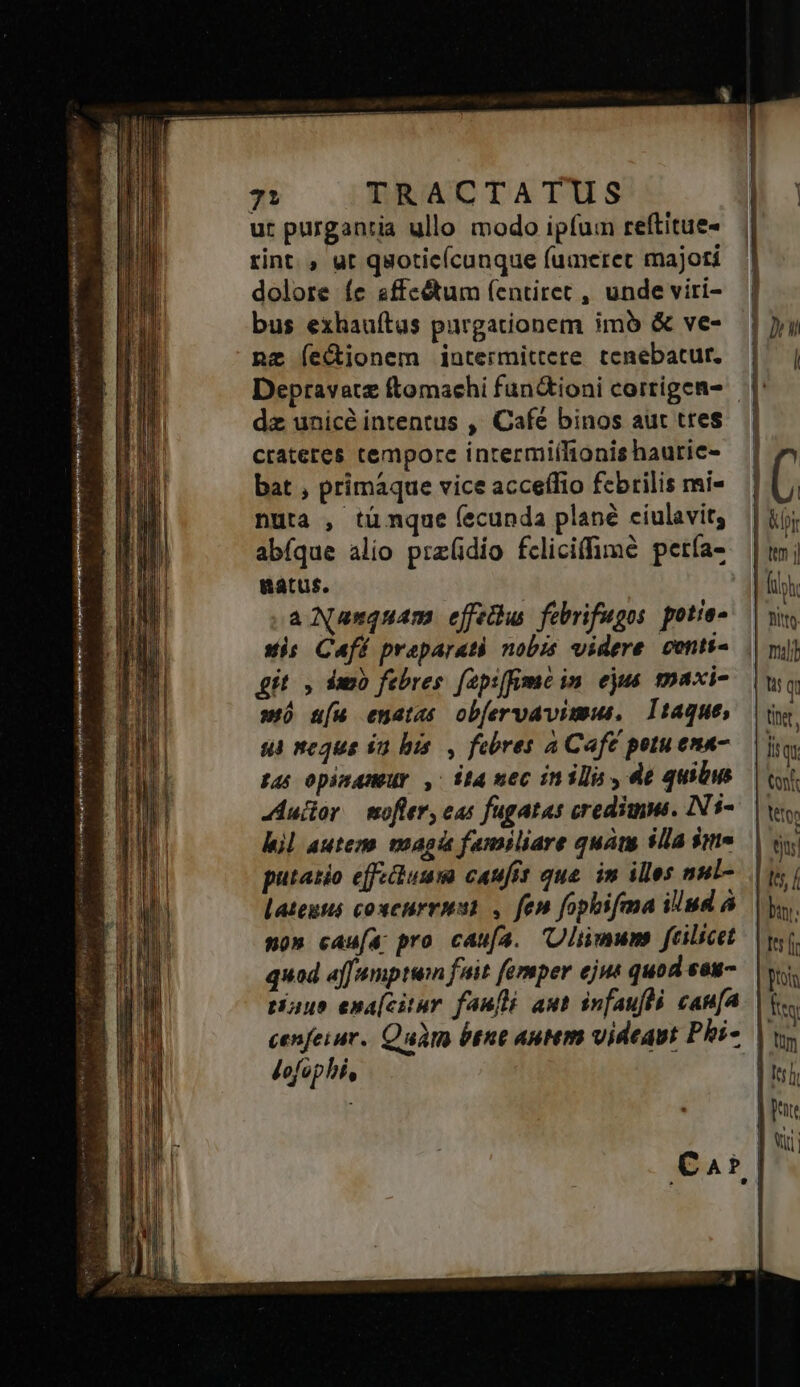 72 TRACTATUS
ut purgantia ullo modo ipſum reſtitue-
rint, ut quotieſcunque ſumeret majori
dolore ſe affectum ſentiret, unde viri-
bus exhauſtus purgationem imò & ve-
næ ſectionem intermittere tenebatur.
Depravatæ ſtomachi functioni corrigen-
dæ unicè intentus, Café binos aut tres
crateres tempore intermiſſionis haurie-
bat, primáque vice acceſſio febrilis mi-
nuta, túnque ſecunda planè eiulavit,
abſque alio præſidio feliciſſimè perſa-
natus.
a Nunquam effectus febrifugos potio-
nis Café præparati nobis videre conti-
git, imò febres ſæpiſſimè in ejus maxi-
mó uſu enatas obſervavimus. Itaque,
ut neque in his, febres à Café potu ena-
tas opinamur, ita nec in illis, de quibus
Auctor noſter, eas fugatas credimus. Ni-
hil autem magis familiare quàm illa im-
putatio effectuum cauſis quæ in illos nul-
latenus concurrunt, ſeu ſophiſma illud à
non cauſa pro cauſa. Ultimum ſcilicet
quod aſſumptum fuit ſemper ejus quod con-
tinuo enaſcitur fauſti aut infauſti cauſa
cenſetur. Quàm bene autem videant Phi-
loſophi,
CAP.